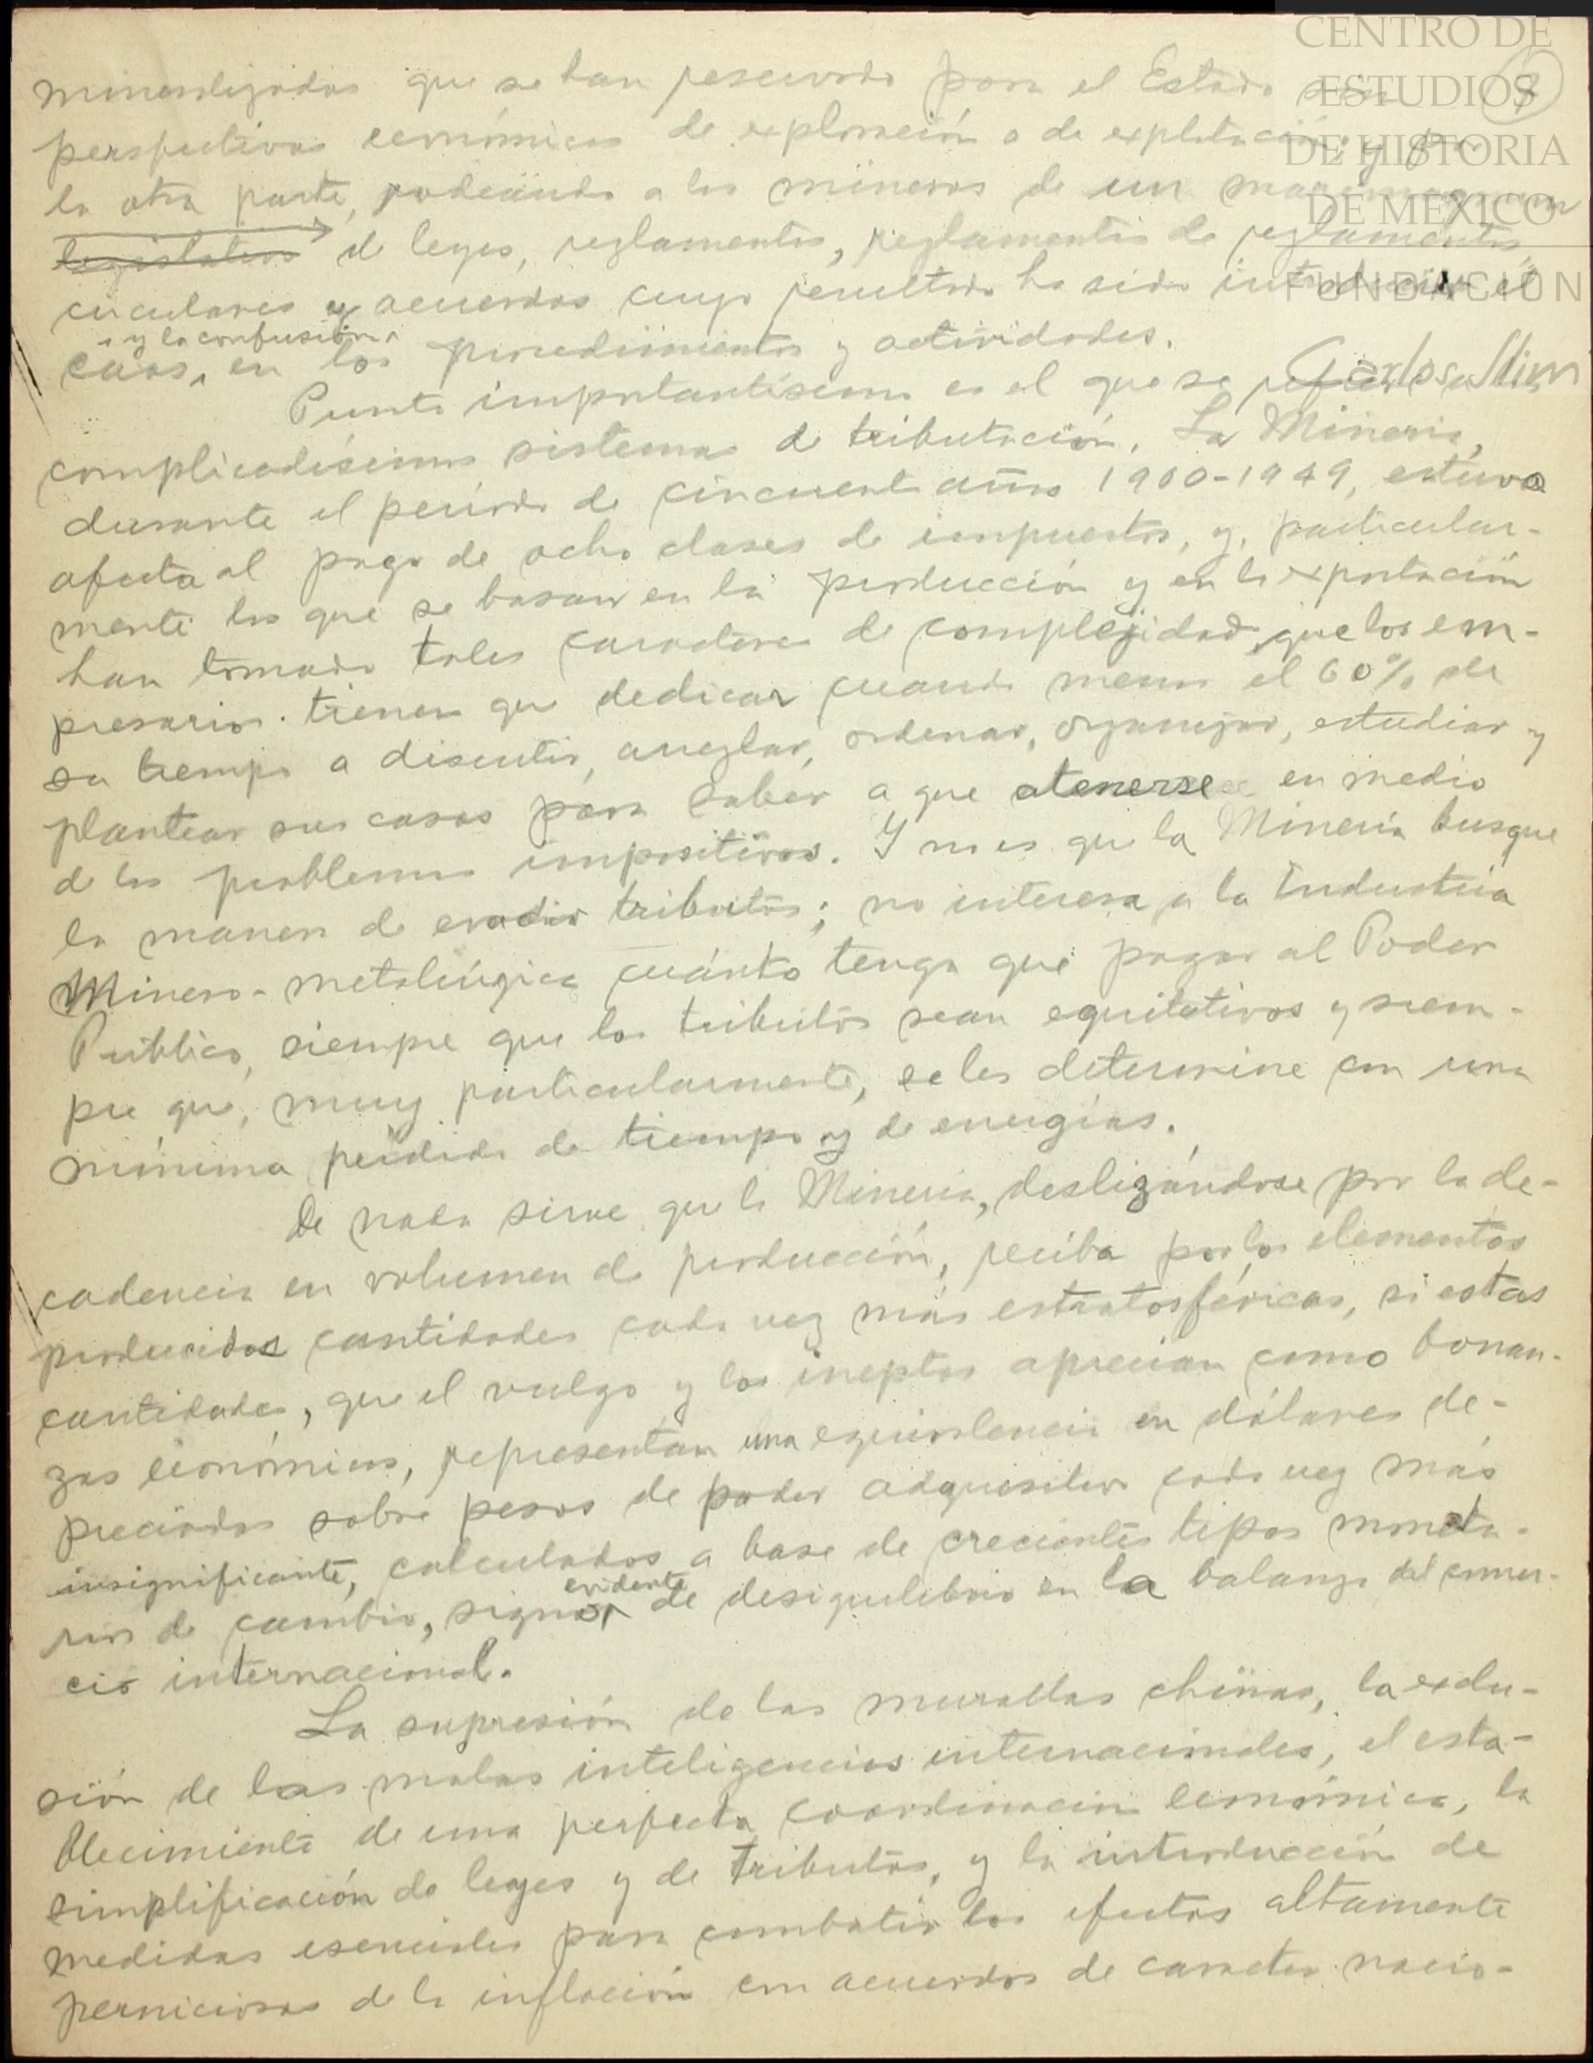 CENTRO DE
ESTUDIOS
DE HISTORIA
DE MÉXICO
FUNDACIÓN
Carlos Slim
mineralizadas que se han reservado para el Estado sin
perspectivas económicas de exploración o de explotación; y por
la otra parte, rodeando a los mineros de un maremagnum
legislativo de leyes, reglamentos, reglamentos de reglamentos
circulares y acuerdos cuyo resultado ha sido introducir el
y la confusión
caos, en los procedimientos y actividades.
Punto importantísimo es el que se refiere al
complicadísimo sistema de tributación. La Minería,
durante el período de cincuenta años 1900-1949, estuvo
afecta al pago de ocho clases de impuestos, y, particular-
mente los que se basan en la producción y en la exportación
han tomado tales caracteres de complejidad, que los em-
presarios tienen que dedicar cuando menos el 60% de
su tiempo a discutir, arreglar, ordenar, organizar, estudiar y
plantear sus casos para saber a que atenerse en medio
de los problemas impositivos. Y no es que la Minería busque
la manera de evadir tributos; no interesa a la Industria
Minero-metalúrgica cuánto tenga que pagar al Poder
Público, siempre que los tributos sean equitativos y siem-
pre que, muy particularmente, se les determine con una
mínima pérdida de tiempo y de energías.
De nada sirve que la Minería, deslizándose por la de-
cadencia en volumen de producción, reciba por los elementos
producidos cantidades cada vez más estratosféricas, si estas
cantidades, que el vulgo y los ineptos aprecian como bonan-
zas económicas, representan una equivalencia en dólares de-
preciados sobre pesos de poder adquisitivo cada vez más
insignificante, calculados a base de crecientes tipos moneta-
evidente
rios de cambio, signo de desiquilibrio en la balanza del comer-
cio internacional.
La supresión de las murallas chinas, la exclu-
sión de las malas inteligencias internacionales, el esta-
blecimiento de una perfecta coordinación económica, la
simplificación de leyes y de tributos, y la introducción de
medidas esenciales para combatir los efectos altamente
perniciosos de la inflación con acuerdos de caracter nacio-